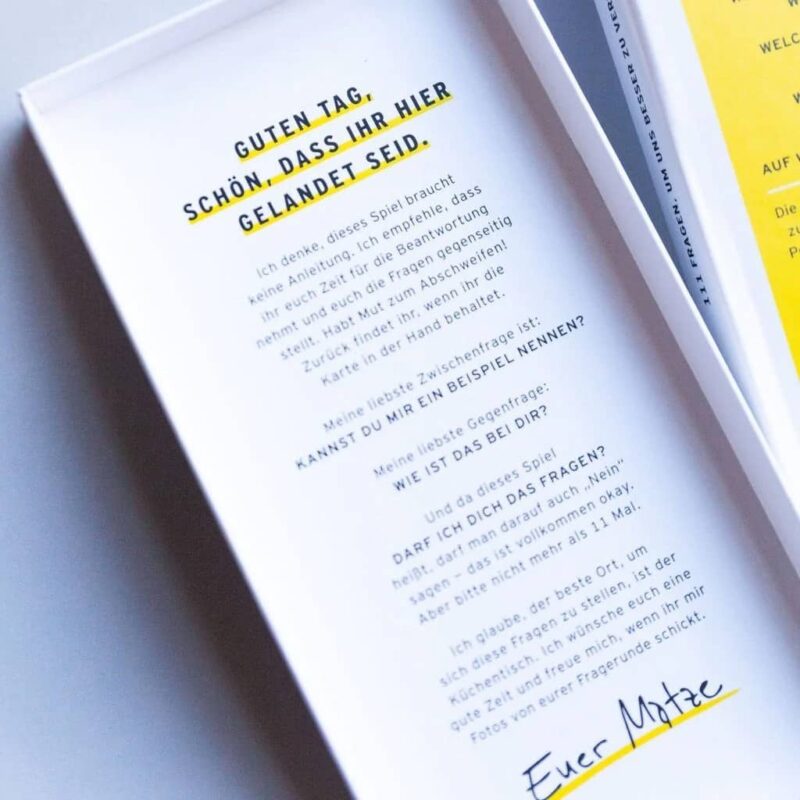 GUTEN TAG,
SCHÖN, DASS IHR HIER
GELANDET SEID.
Ich denke, dieses Spiel braucht
keine Anleitung. Ich empfehle, dass
ihr euch Zeit für die Beantwortung
nehmt und euch die Fragen gegenseitig
stellt. Habt Mut zum Abschweifen!
Zurück findet ihr, wenn ihr die
Karte in der Hand behaltet.
Meine liebste Zwischenfrage ist:
KANNST DU MIR EIN BEISPIEL NENNEN?
Meine liebste Gegenfrage:
WIE IST DAS BEI DIR?
Und da dieses Spiel
DARF ICH DICH DAS FRAGEN?
heißt, darf man darauf auch „Nein“
sagen – das ist vollkommen okay.
Aber bitte nicht mehr als 11 Mal.
Ich glaube, der beste Ort, um
sich diese Fragen zu stellen, ist der
Küchentisch. Ich wünsche euch eine
gute Zeit und freue mich, wenn ihr mir
Fotos von eurer Fragerunde schickt.
Euer Matze
111 FRAGEN, UM UNS BESSER ZU
WELC
W
AUF
Die
zu